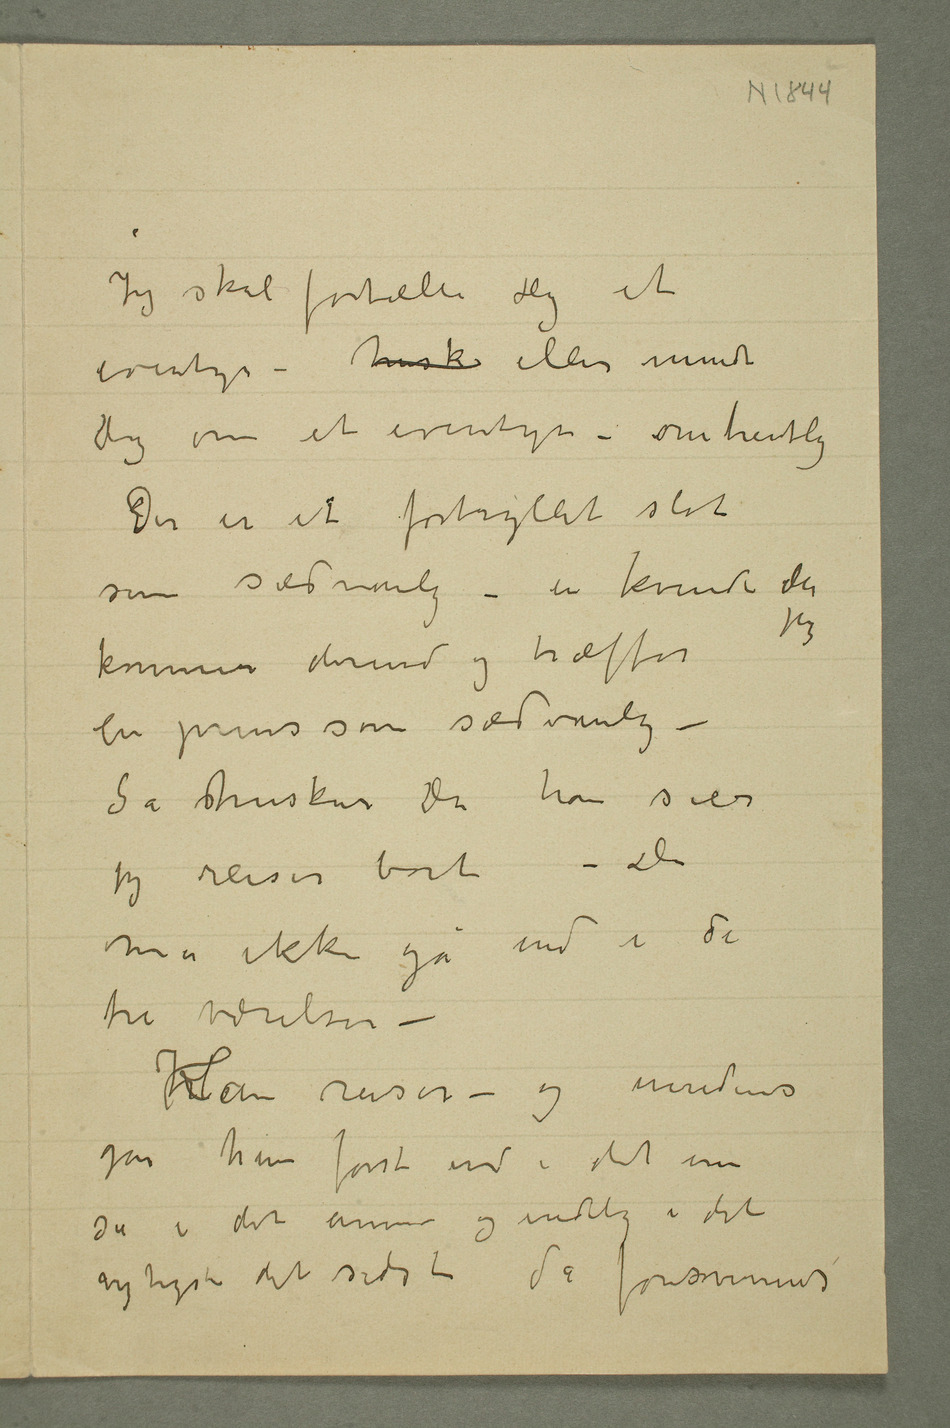 N 1844
Jeg skal fortælle dig et
eventyr – husk eller minde
dig om et eventyr – omtrentlig
Der er et fortryllet slot
som sædvanlig – en kvinde der
jeg
kommer derind og træffer
en prins som sædvanlig –
Så husker Du han sier
jeg reiser bort – Du
må ikke gå ind i de
tre værelser –
Han reiser – og imidens
går hun først ind i det ene
så i det annet og endelig i det
vigtigste det sidste da forsvinner